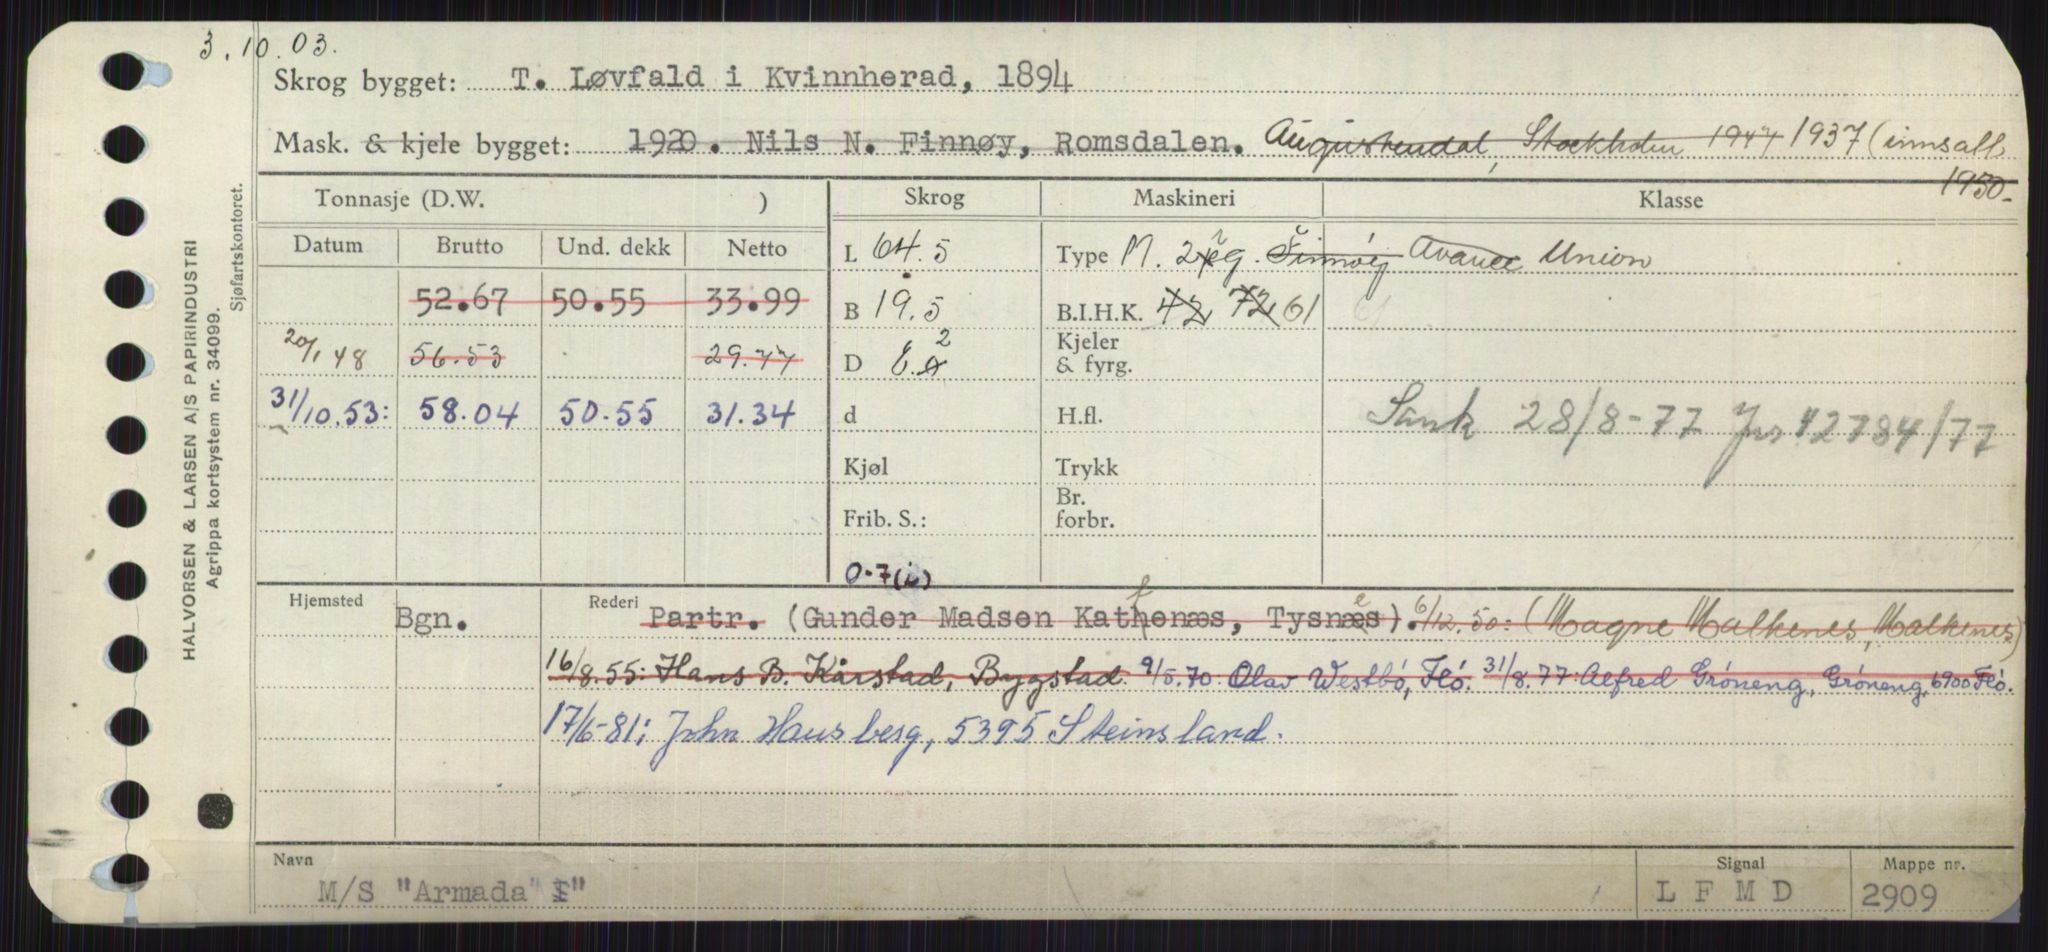 3.10.03.
Skrog bygget: T. Løvfald i Kvinnherad, 1894
Mask. & kjele bygget: 1920. Nils N. Finnøy, Romsdalen. Augustendal, Stockholm 1947 1937 (innsatt
1950.
Tonnasje (D.W. ) Skrog Maskineri Klasse
Datum Brutto Und. dekk Netto L 64.5 Type M. 2 syl. Finnöy Avance Union
52.67 50.55 33.99 B 19.5 B.I.H.K. 42 72 61
20/1 48 56.53 29.77 D 8.2 Kjeler & fyrg.
31/10.53: 58.04 50.55 31.34 d H.fl. Sank 28/8-77 Jnr 12784/77
Kjøl Trykk
Frib. S.: Br. forbr.
0-7(i)
Hjemsted Bgn. Rederi Partr. (Gunder Madsen Kathenæs, Tysnæs). 6/12.50: (Magne Malkenes, Malkenes)
16/8.55: Hans B. Kårstad, Bygstad. 9/5.70 Olav Westbö, Flö. 31/8.77: Alfred Gröneng, Gröneng, 6900 Flö.
17/6-81: John Hausberg, 5395 Steinsland.
Navn Signal Mappe nr.
M/S "Armada I" L F M D 2909
HALVORSEN & LARSEN A/S PAPIRINDUSTRI
Agrippa kortsystem nr. 34099.
Sjøfartskontoret.